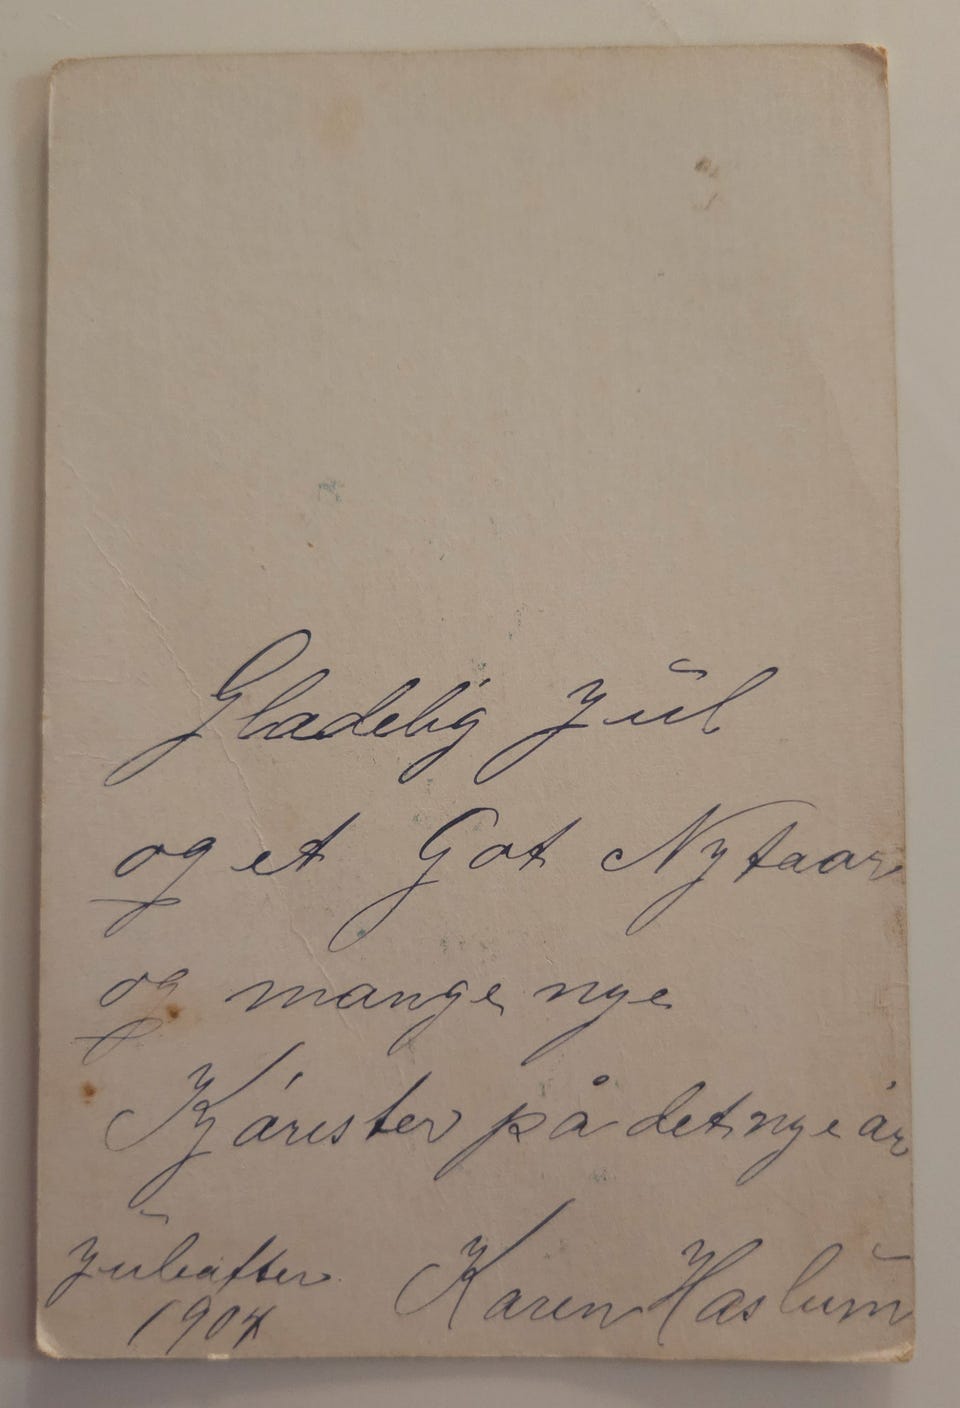 Gladelig Jul
og et Got Nytaar
og mange nye
Kjärester på det nye år
Juleaften
1904 Karen Haslum